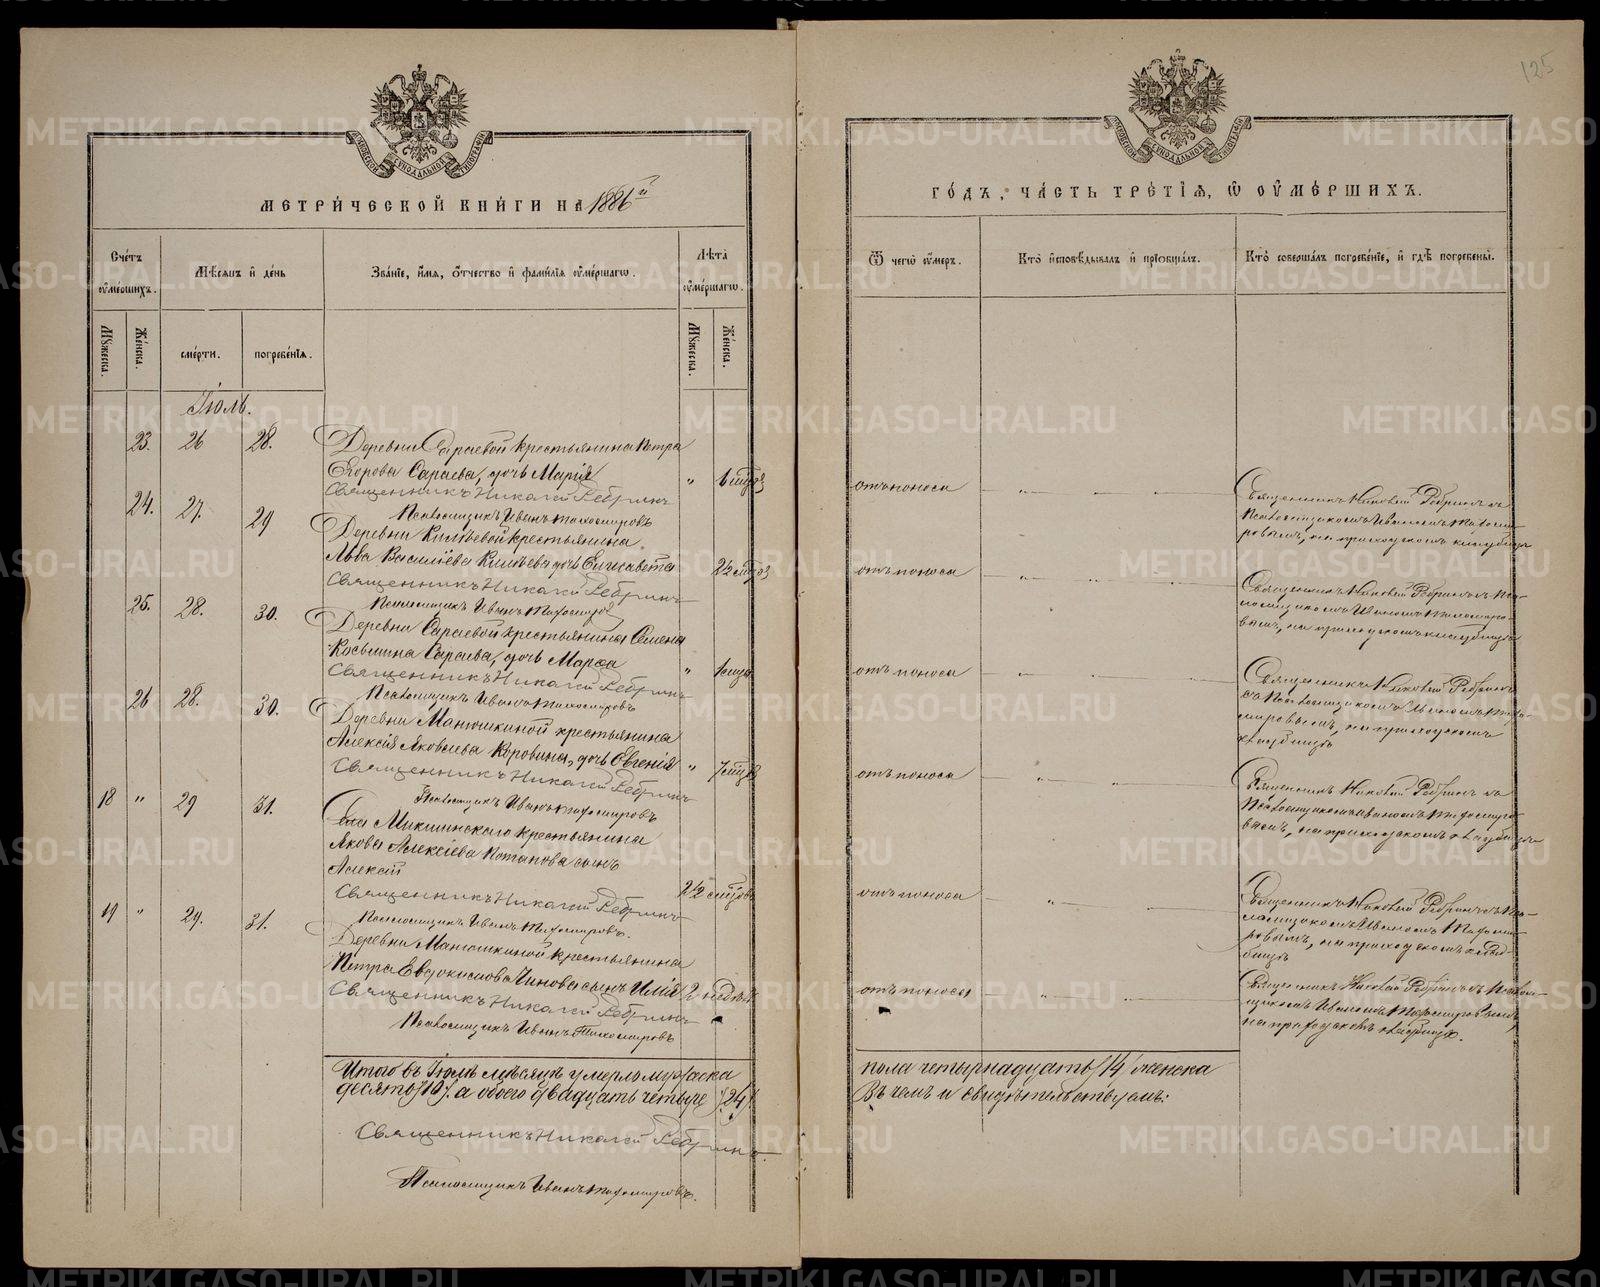 МЕТРИ́ЧЕСКОЙ КНИ́ГИ НА 1886й
Сче́тъ ᲂу҆ме́ршихъ.
Мѣ́сяцъ и҆ де́нь
Зва́нїе, и҆́мя, ѻ҆́тчество и҆ фами́лїя ᲂу҆ме́ршагѡ.
Лѣта̀ ᲂу҆ме́ршагѡ.
Мꙋ́жеска.
Же́нска.
сме́рти.
погребе́нїѧ.
Мꙋ́жеска.
Же́нска.
Іюль.
23. 26 28. Деревни Сараевой крестьянина Петра
Егорова Сараева, дочь Марія " 6 мцов
Священникъ Николай Ребринъ
Псаломщикъ Иванъ Тихомировъ
24. 27. 29 Деревни Кильевой крестьянина
Льва Василіева дочь Елисавета 2½ мцов
Священникъ Николай Ребринъ
Псаломщикъ Иванъ Тихомиров
25. 28. 30. Деревни Сараевой крестьянина Семена
Косьмина Сараева, дочь Марфа "
Священникъ Николай Ребринъ
Псаломщикъ Иванъ Тихомировъ
26 28. 30. Деревни Манюшкиной крестьянина
Алексія Яковлева Коровина, дочь Евгенія " 7 мцов
Священникъ Николай Ребринъ
Псаломщикъ Иванъ Тихомировъ
18 " 29 31. Села Микшинскаго крестьянина
Якова Алексіева Потапова сынъ
Алексій
2½ мцовъ
Священникъ Николай Ребринъ
Псаломщикъ Иванъ Тихомировъ.
19 " 29. 31. Деревни Манюшкиной крестьянина
Петра Евдокимова сынъ Илія 2 недѣль
Священникъ Николай Ребринъ
Псаломщикъ Иванъ Тихомировъ
Итого въ Іюлѣ мѣсяцѣ умерло мужеска
десять /10/. а обоего двадцать четыре /24/.
Священникъ Николай Ребринъ.
Псаломщикъ Иванъ Тихомировъ.
125
ГО́ДЪ, ЧА́СТЬ ТРЕ́ТЇѦ, Ѿ ОУ҆МЕ́РШИХЪ.
Ѿ чегѡ̀ ᲂу҆́меръ.
Кто̀ и҆сповѣ́дывалъ и҆ прїѻбща́лъ.
Кто̀ соверша́лъ погребе́нїе, и҆ гдѣ̀ погребены̀.
отъ поноса
Священникъ Николай Ребринъ съ
Псаломщикомъ Иваномъ Тихоми-
ровымъ, на приходскомъ кладбищѣ
отъ поноса
Священникъ Николай Ребринъ съ Пса-
ломщикомъ Иваномъ Тихомиро-
вымъ, на приходскомъ кладбищѣ
отъ поноса
Священникъ Николай Ребринъ
съ Псаломщикомъ Иваномъ Тихо-
мировымъ, на приходскомъ
кладбищѣ
отъ поноса
Священникъ Николай Ребринъ съ
Псаломщикомъ Иваномъ Тихомиро-
вымъ, на приходскомъ кладбищѣ
отъ поноса
Священникъ Николай Ребринъ съ Пса-
ломщикомъ Иваномъ Тихоми-
ровымъ, на приходскомъ клад-
бищѣ
отъ поноса
Священникъ Николай Ребринъ съ Псалом-
щикомъ Иваномъ Тихомировымъ,
на приходскомъ кладбищѣ.
пола четырнадцать /14/ женска
Въ чемъ и свидѣтельствуемъ:
METRIKI.GASO-URAL.RU